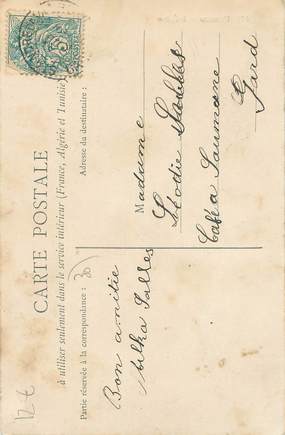 CARTE POSTALE
à utiliser seulement dans le service intérieur (France, Algérie et Tunisie)
Partie réservée à la correspondance :
Adresse du destinataire :
Bon amitie
Salles
Madame
Elodie Salles
Saumane
Gard
12 €